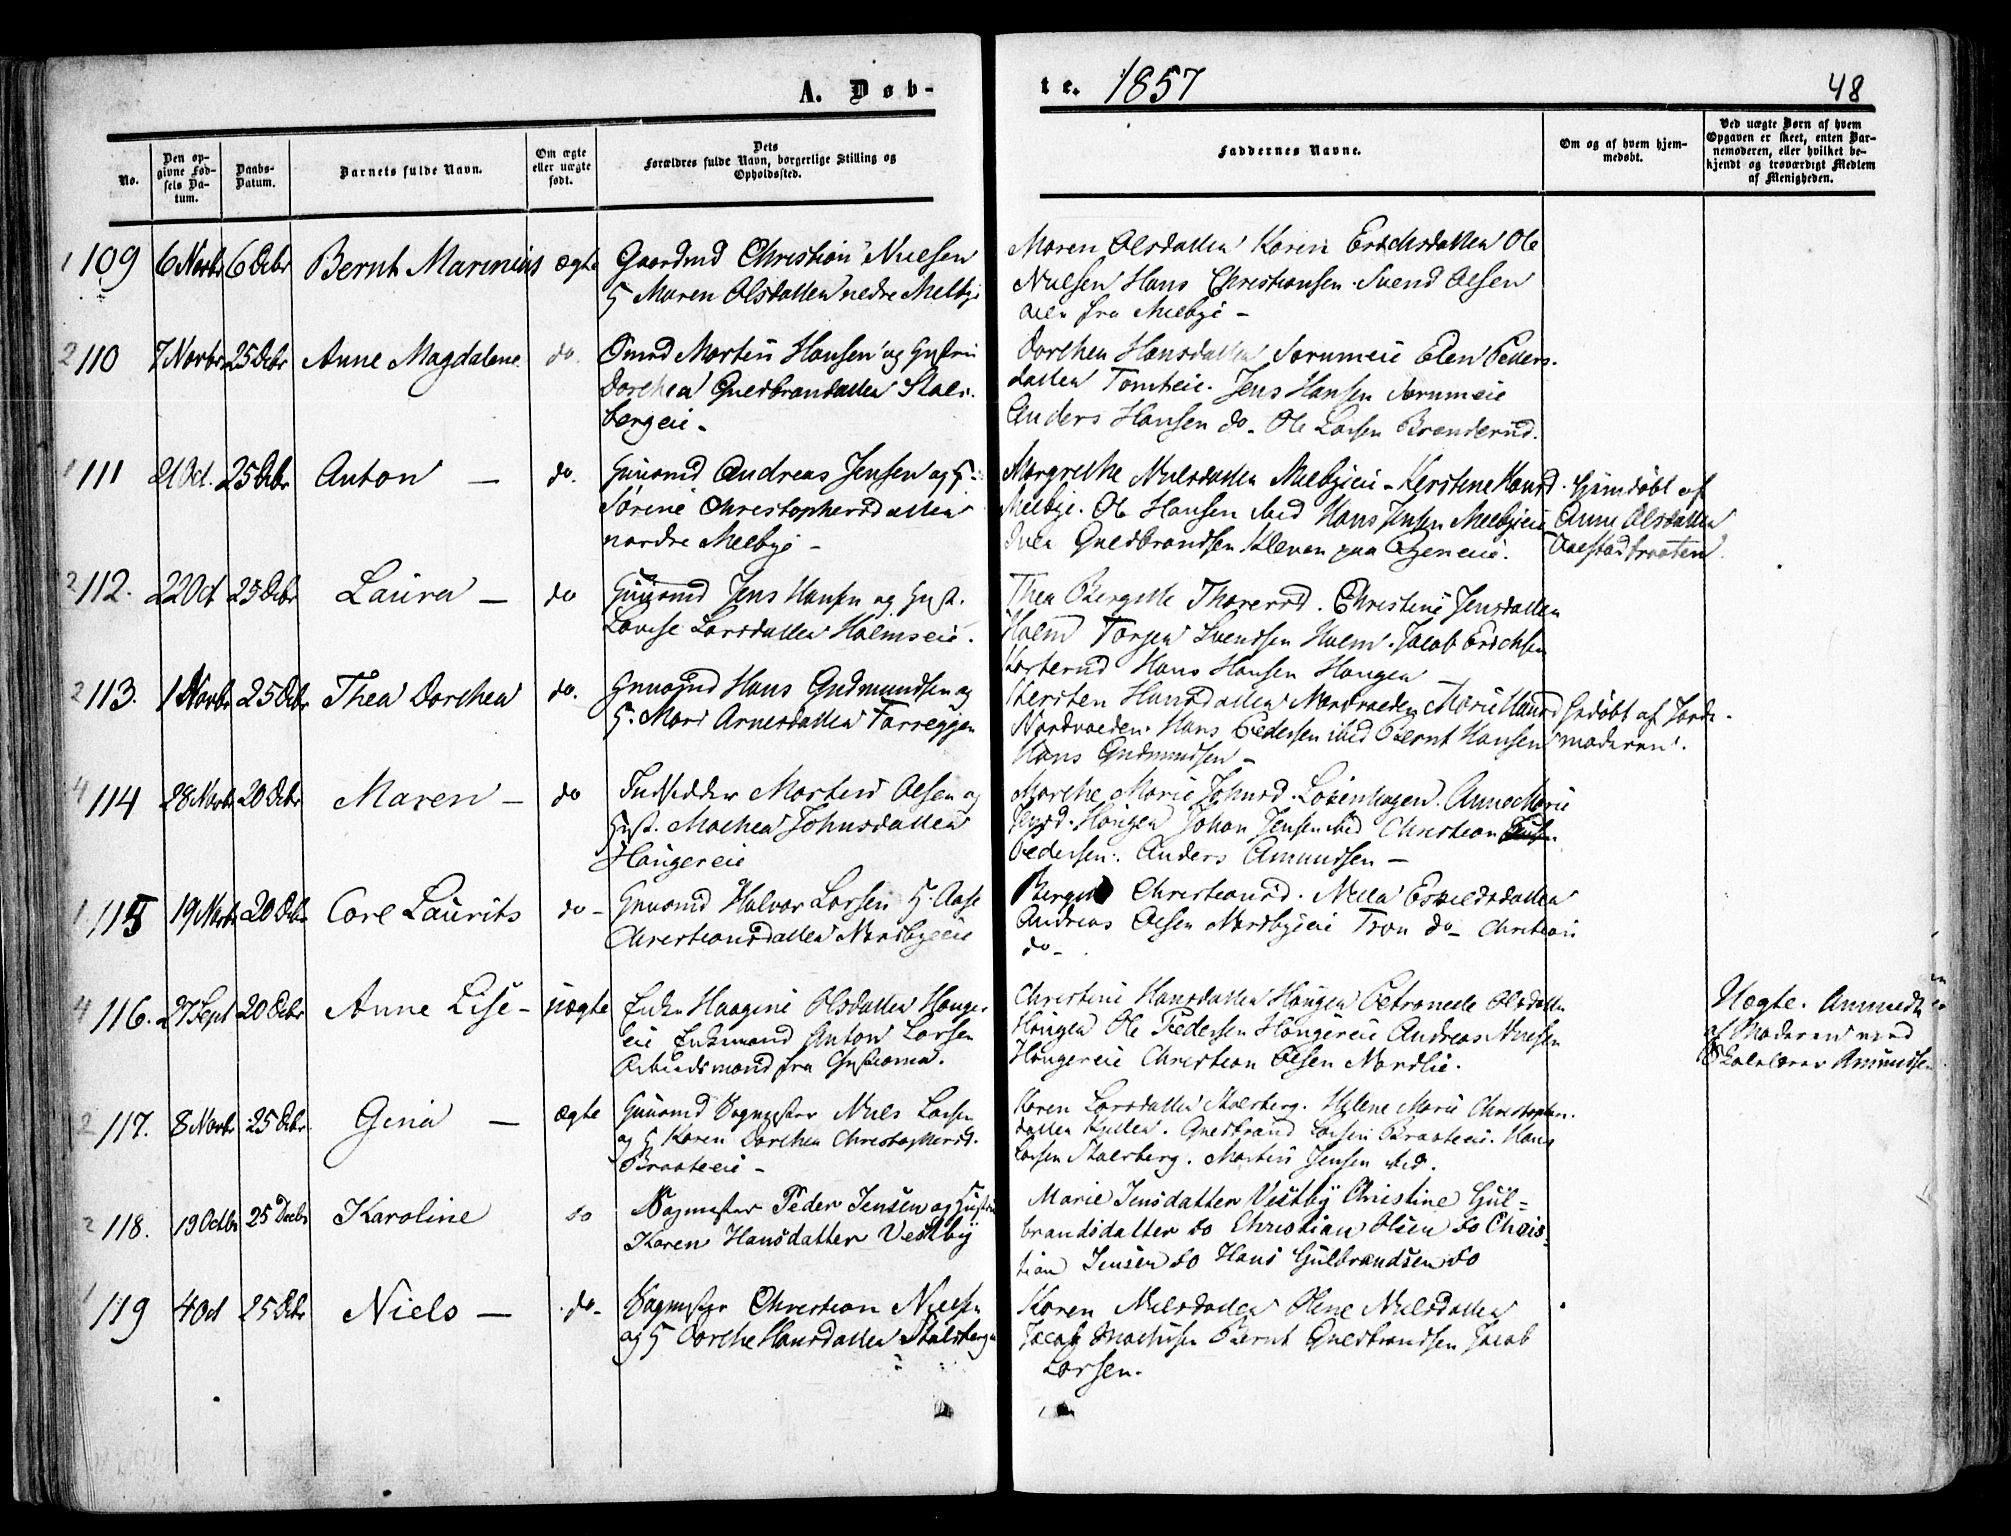 A. Døb-
te. 1857
48
No.
Den op-
givne Fød-
sels Da-
tum.
Daabs-
Datum.
Barnets fulde Navn.
Om ægte
eller uægte
født.
Dets
Forældres fulde Navn, borgerlige Stilling og
Opholdssted.
Faddernes Navne.
Om og af hvem hjem-
medøbt.
Ved uægte Børn af hvem
Opgaven er skeet, enten Bar-
nemoderen, eller hvilket be-
kjendt og troværdigt Medlem
af Menigheden.
1 109 6 Novbr 6 Debr Bernt Marinius ægte Gaardmd Christian Nielsen
H Maren Olsdatter nedre Melbye
Maren Olsdatter Karen Erichsdatter Ole
Nielsen Hans Christiansen Svend Olsen
alle fra Melbye -
2 110 7 Novbr 25 Debr Anne Magdalene do. Morten Hansen og Hustru
Dorthea Guldbrandsdatter Stals-
bergeie -
Dorthea Hansdatter Sørumeie Elen Peders-
datter Tomteie. Jens Hansen Sørumeie
Anders Hansen do - Ole Larsen Brenderud.
1 111 21 Oct. 25 Debr Anton - do. Huusmd Andreas Jensen og H.
Sørine Christophersdatter
nordre Melbye -
Margrethe Nielsdatter Melbyeie - Kerstine Hansd.
Melbye. Ole Hansen ibid Hans Jensen Melbyeie
Guldbrandsen Kleven paa
Hjemdøbt af
Anne Olsdatter
2 112. 22 Oct 25 Debr Laura - do Huusmd Jens Hansen og Hust.
Lovise Larsdatter Holmseie.
Thea Thorerud. Christine Jensdatter
Holm Torger Svendsen Holm. Jacob Erichsen
Hans Hansen Haugen
2 113. 1 Novbr 25 Debr Thea Dorthea do. Huusmd Hans Gudmundsen og
H. Mari Arnesdatter
Kersten Hansdatter Marie Hansd
Hans Pedersen ibid Bernt Hansen
Hans Gudmundsen -
Hjdøbt af Jorde-
moderen.
4 114 28 Novbr 20 Debr Maren - do Indsidder Morten Olsen og
Hust. Mathea Johnsdatter
Haugereie
Marthe Marie Johnsd. Anne Marie
Jensd. Haugen Johan Jensen ibid Christian
Pedersen. Anders Amundsen -
1 115 19 Novbr 20 Debr Carl Laurits do - Huusmd Halvor Larsen H. Aase
Christiansdatter Nordbyeie
Christiansd. Nilla Eskildsdatter
Andreas Olsen Nordbyeie Tron do - Christian
do -
4 116. 27 Sept 20 Debr Anne Lise - uægte Enke Haagine Olsdatter Hauger-
eie Enkemand Anton Larsen
Arbeidsmand fra Christiania.
Christine Hansdatter Haugen Petronelle Olsdatter
Haugen Ole Pedersen Haugereie Andreas Nielsen
Haugereie Christian Olsen Nordlie.
Uægte. Anmeldt
af Moderen ved
Skolelærer Amundsen
2 117. 8 Novbr 25 Debr Gina - ægte Huusmd Bagmester Niels Larsen
og H Karen Dorthea Christophersd.
Braateeie -
Karen Larsdatter Stalsberg. Helene Marie Christophers-
datter Guldbrand Larsen Braateeie. Hans
Larsen Stalsberg. Morten Jensen ibid.
2 118. 19 Octbr 25 Decbr Karoline do Bagmester Peder Jensen og Hustru
Karen Hansdatter Vestby
Marie Jensdatter Vestby Christine Gul-
brandsdatter do Christian Olsen do Chris-
tian Jensen do Hans Gulbrandsen do
1 119 4 Oct 25 Debr Niels - do - Bagmester Christian Nielsen
og H Dorthe Hansdatter Stalsberg
Karen Nielsdatter Oline Nielsdatter
Jacob Mathisen Bernt Guldbrandsen Jacob
Larsen.